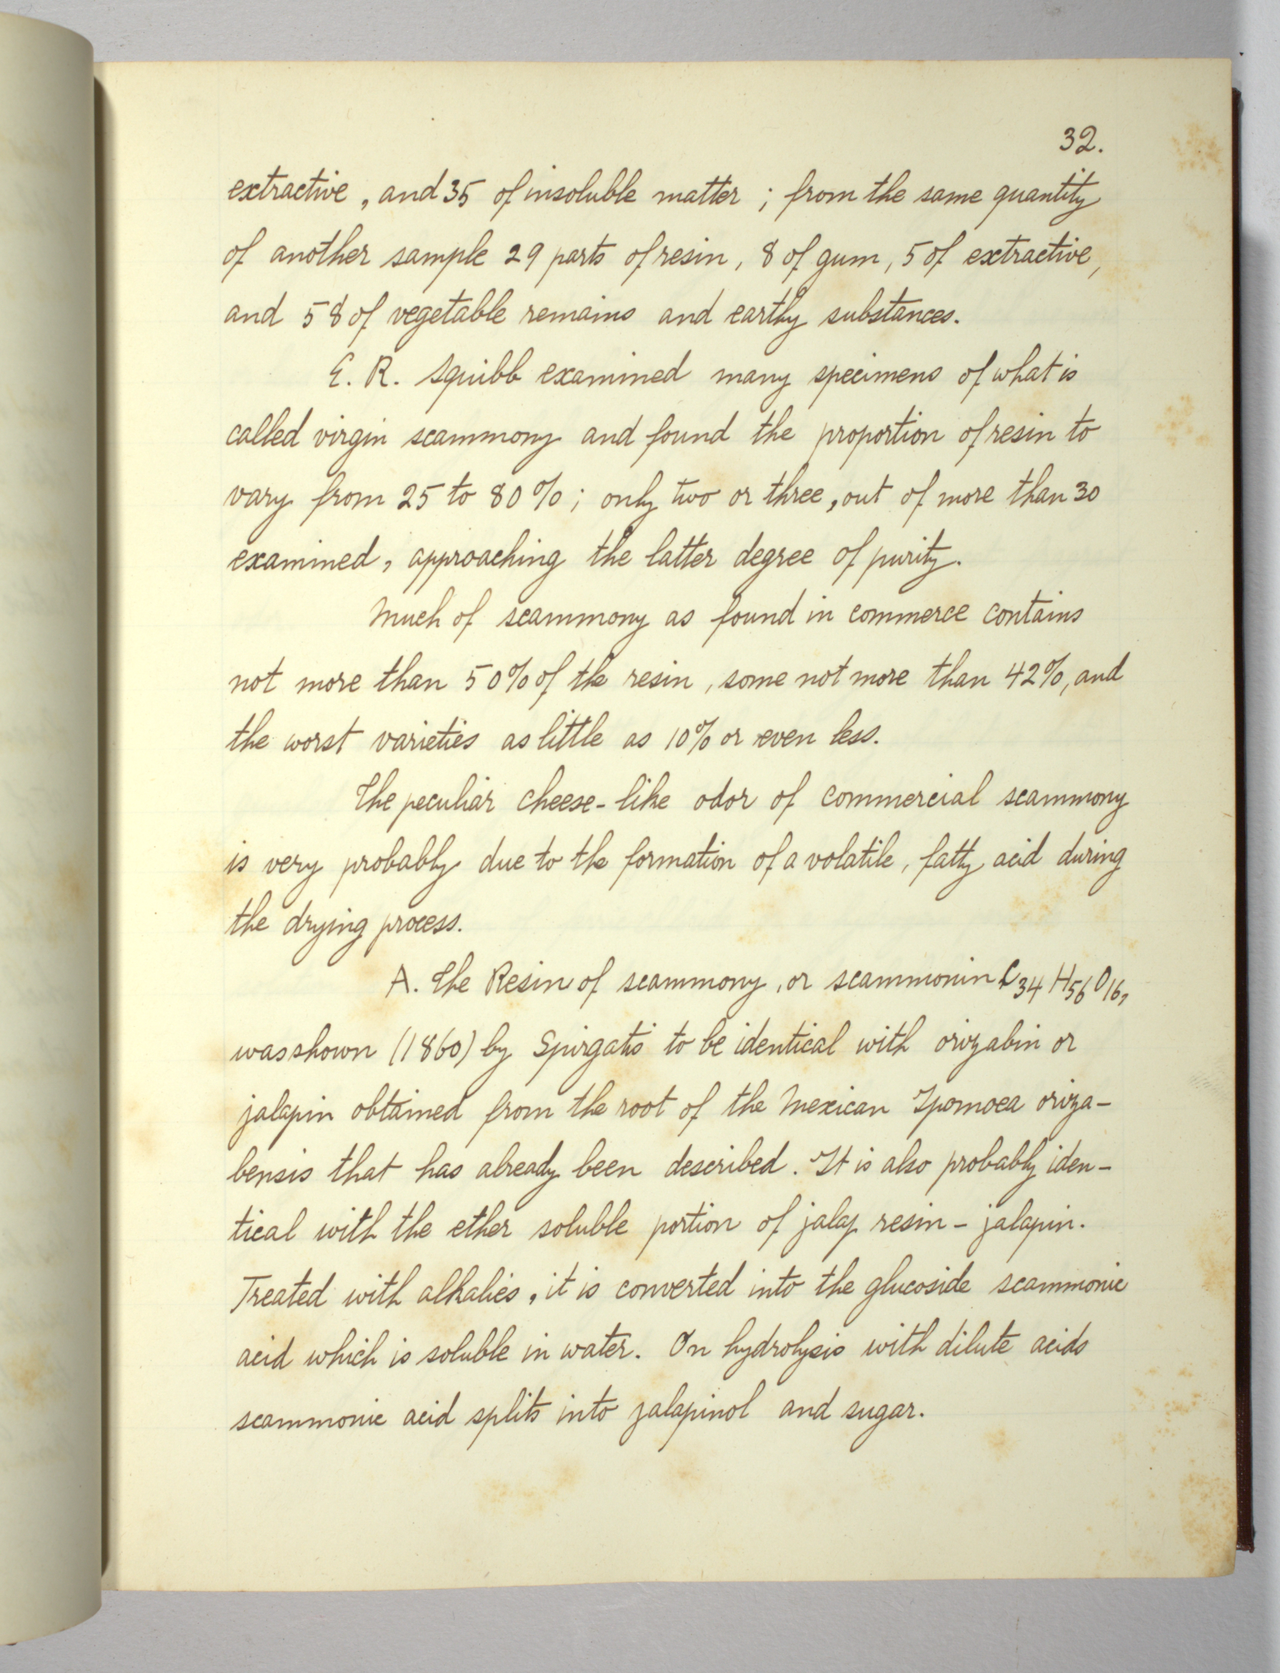 32.
extractive, and 35 of insoluble matter; from the same quantity
of another sample 29 parts of resin, 8 of gum, 5 of extractive,
and 58 of vegetable remains and earthy substances.
E. R. Squibb examined many specimens of what is
called virgin scammony and found the proportion of resin to
vary from 25 to 80%; only two or three, out of more than 30
examined, approaching the latter degree of purity.
Much of scammony as found in commerce contains
not more than 50% of the resin, some not more than 42%, and
the worst varieties as little as 10% or even less.
The peculiar cheese-like odor of commercial scammony
is very probably due to the formation of a volatile, fatty acid during
the drying process.
A. The Resin of scammony, or scammonin C₃₄H₅₆O₁₆,
was shown (1860) by Spirgatis to be identical with orizabin or
jalapin obtained from the root of the Mexican Ipomoea oriza-
bensis that has already been described. It is also probably iden-
tical with the ether soluble portion of jalap resin - jalapin.
Treated with alkalies, it is converted into the glucoside scammonic
acid which is soluble in water. On hydrolysis with dilute acids
scammonic acid splits into jalapinol and sugar.